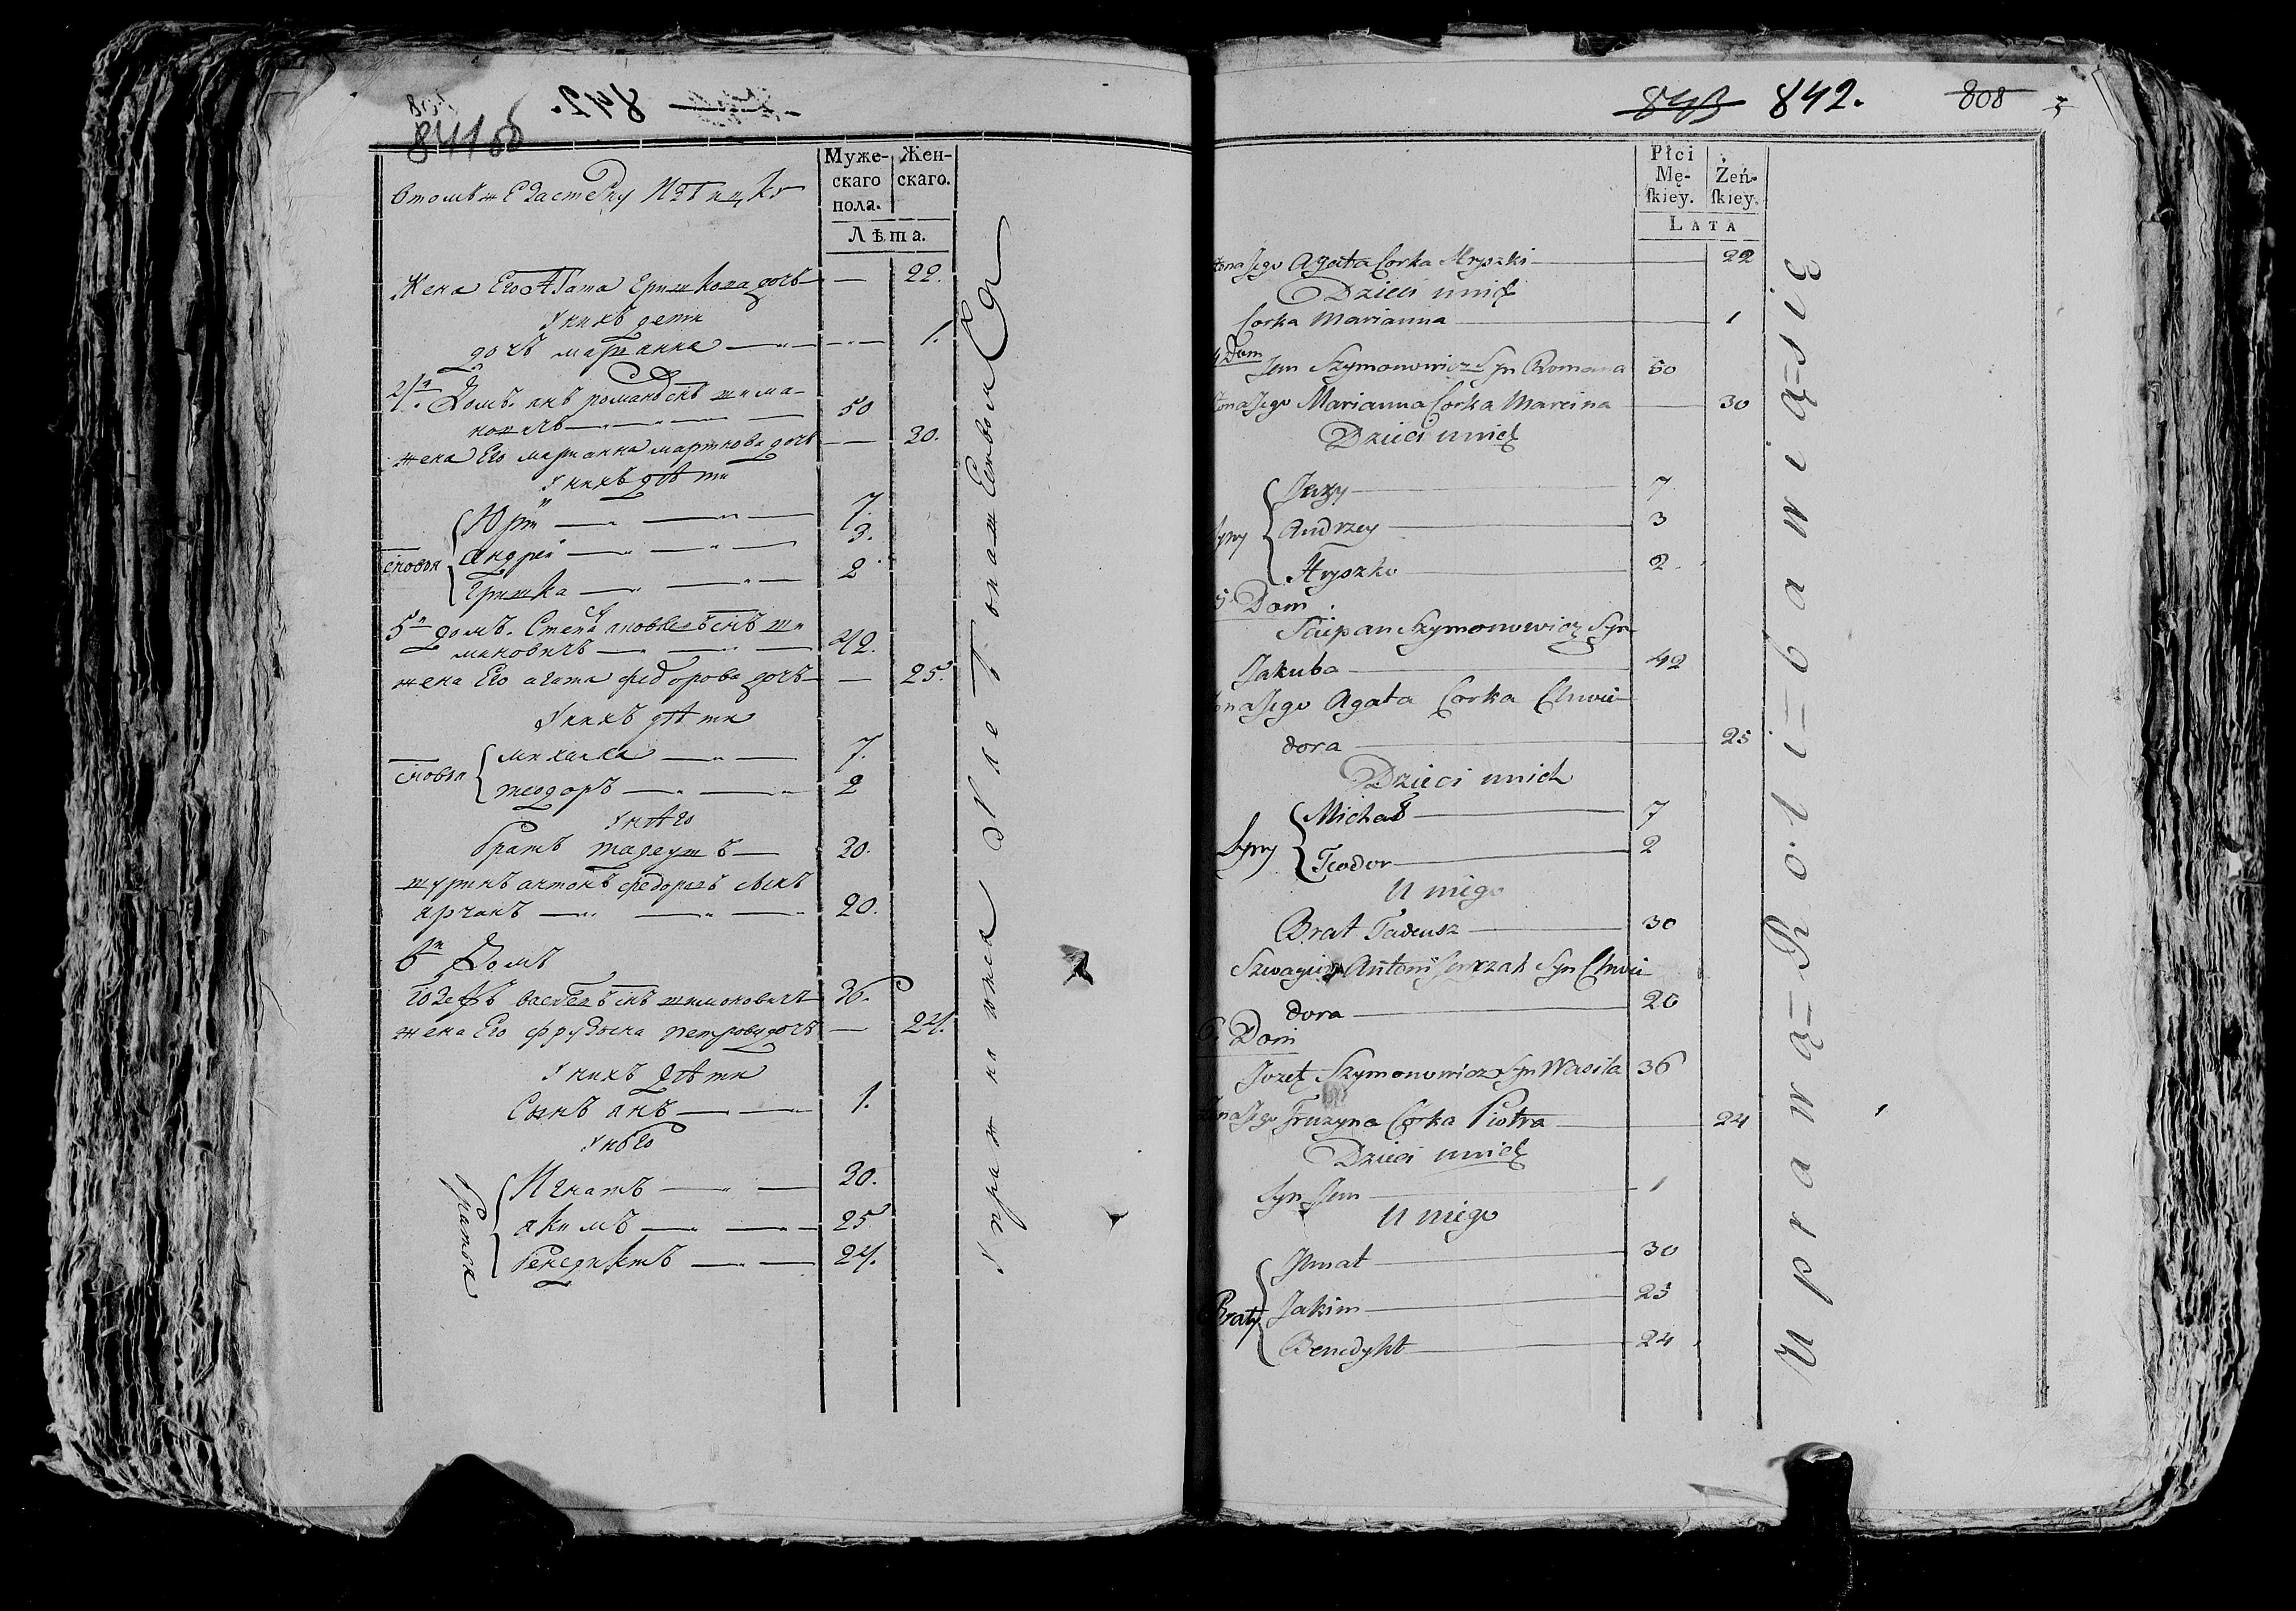 841 об
842.
Муже-
скаго
пола.
Жен-
скаго.
Лѣта.
Жена Его Агата Гришкова дочь — 22.
У нихъ дети
дочь марианна — 1.
4й Домъ. янъ романовъ снъ шима-
новичъ — 50
жена Его марианна мартинова дочь — 30.
У нихъ дѣти
сновья
Юри — 7.
андрей — 3.
Гришка — 2
5й домъ. Степан яковлевъ снъ ши
мановичъ — 42.
жена Его агата федорова дочь — 25.
У нихъ дѣти
сновья
михалка — 7.
теодоръ — 2
У нѣго
братъ тадеушъ — 30.
шуринъ антонъ федоровъ снъ
ярчакъ — 20.
6й Домъ
Іозефъ васильевъ снъ шимоновичъ 36.
жена Его фрузына петрова дочь — 24.
У нихъ дѣти
Сынъ янъ — 1.
У нѣго
братья
Игнатъ — 30.
якимъ — 25
бенедиктъ — 24.
843 842. 808
Płci
Mę-
ſkiey.
Żeń-
ſkiey.
LATA
Żona Jego Agata Corka Hryszki — 22
Dzieci u nich
Corka Marianna — 1
4 Dom
Jan Szymonowicz Syn Romana 50
Żona Jego Marianna Corka Marcina — 30
Dzieci u nich
Syny
Jerzy — 7
Andrzey — 3
Hryszko — 2
5. Dom
Sciepan Szymonowicz Syn
Jakuba — 42
Żona Jego Agata Corka Chwie-
dora — 25
Dzieci u nich
Syny
Michał — 7
Teodor — 2
U niego
Brat Tadeusz — 30
Szwagier Antoni Jarczak Syn Chwie-
dora — 20
6. Dom
Jozef Szymonowicz Syn Wasila 36
Żona Jego Fruzyna Corka Piotra — 24
Dzieci u nich
Syn Jan — 1
U niego
Braty
Ihnat — 30
Jakim — 25
Benedykt — 24
Uprawą=Roli=bawią=się